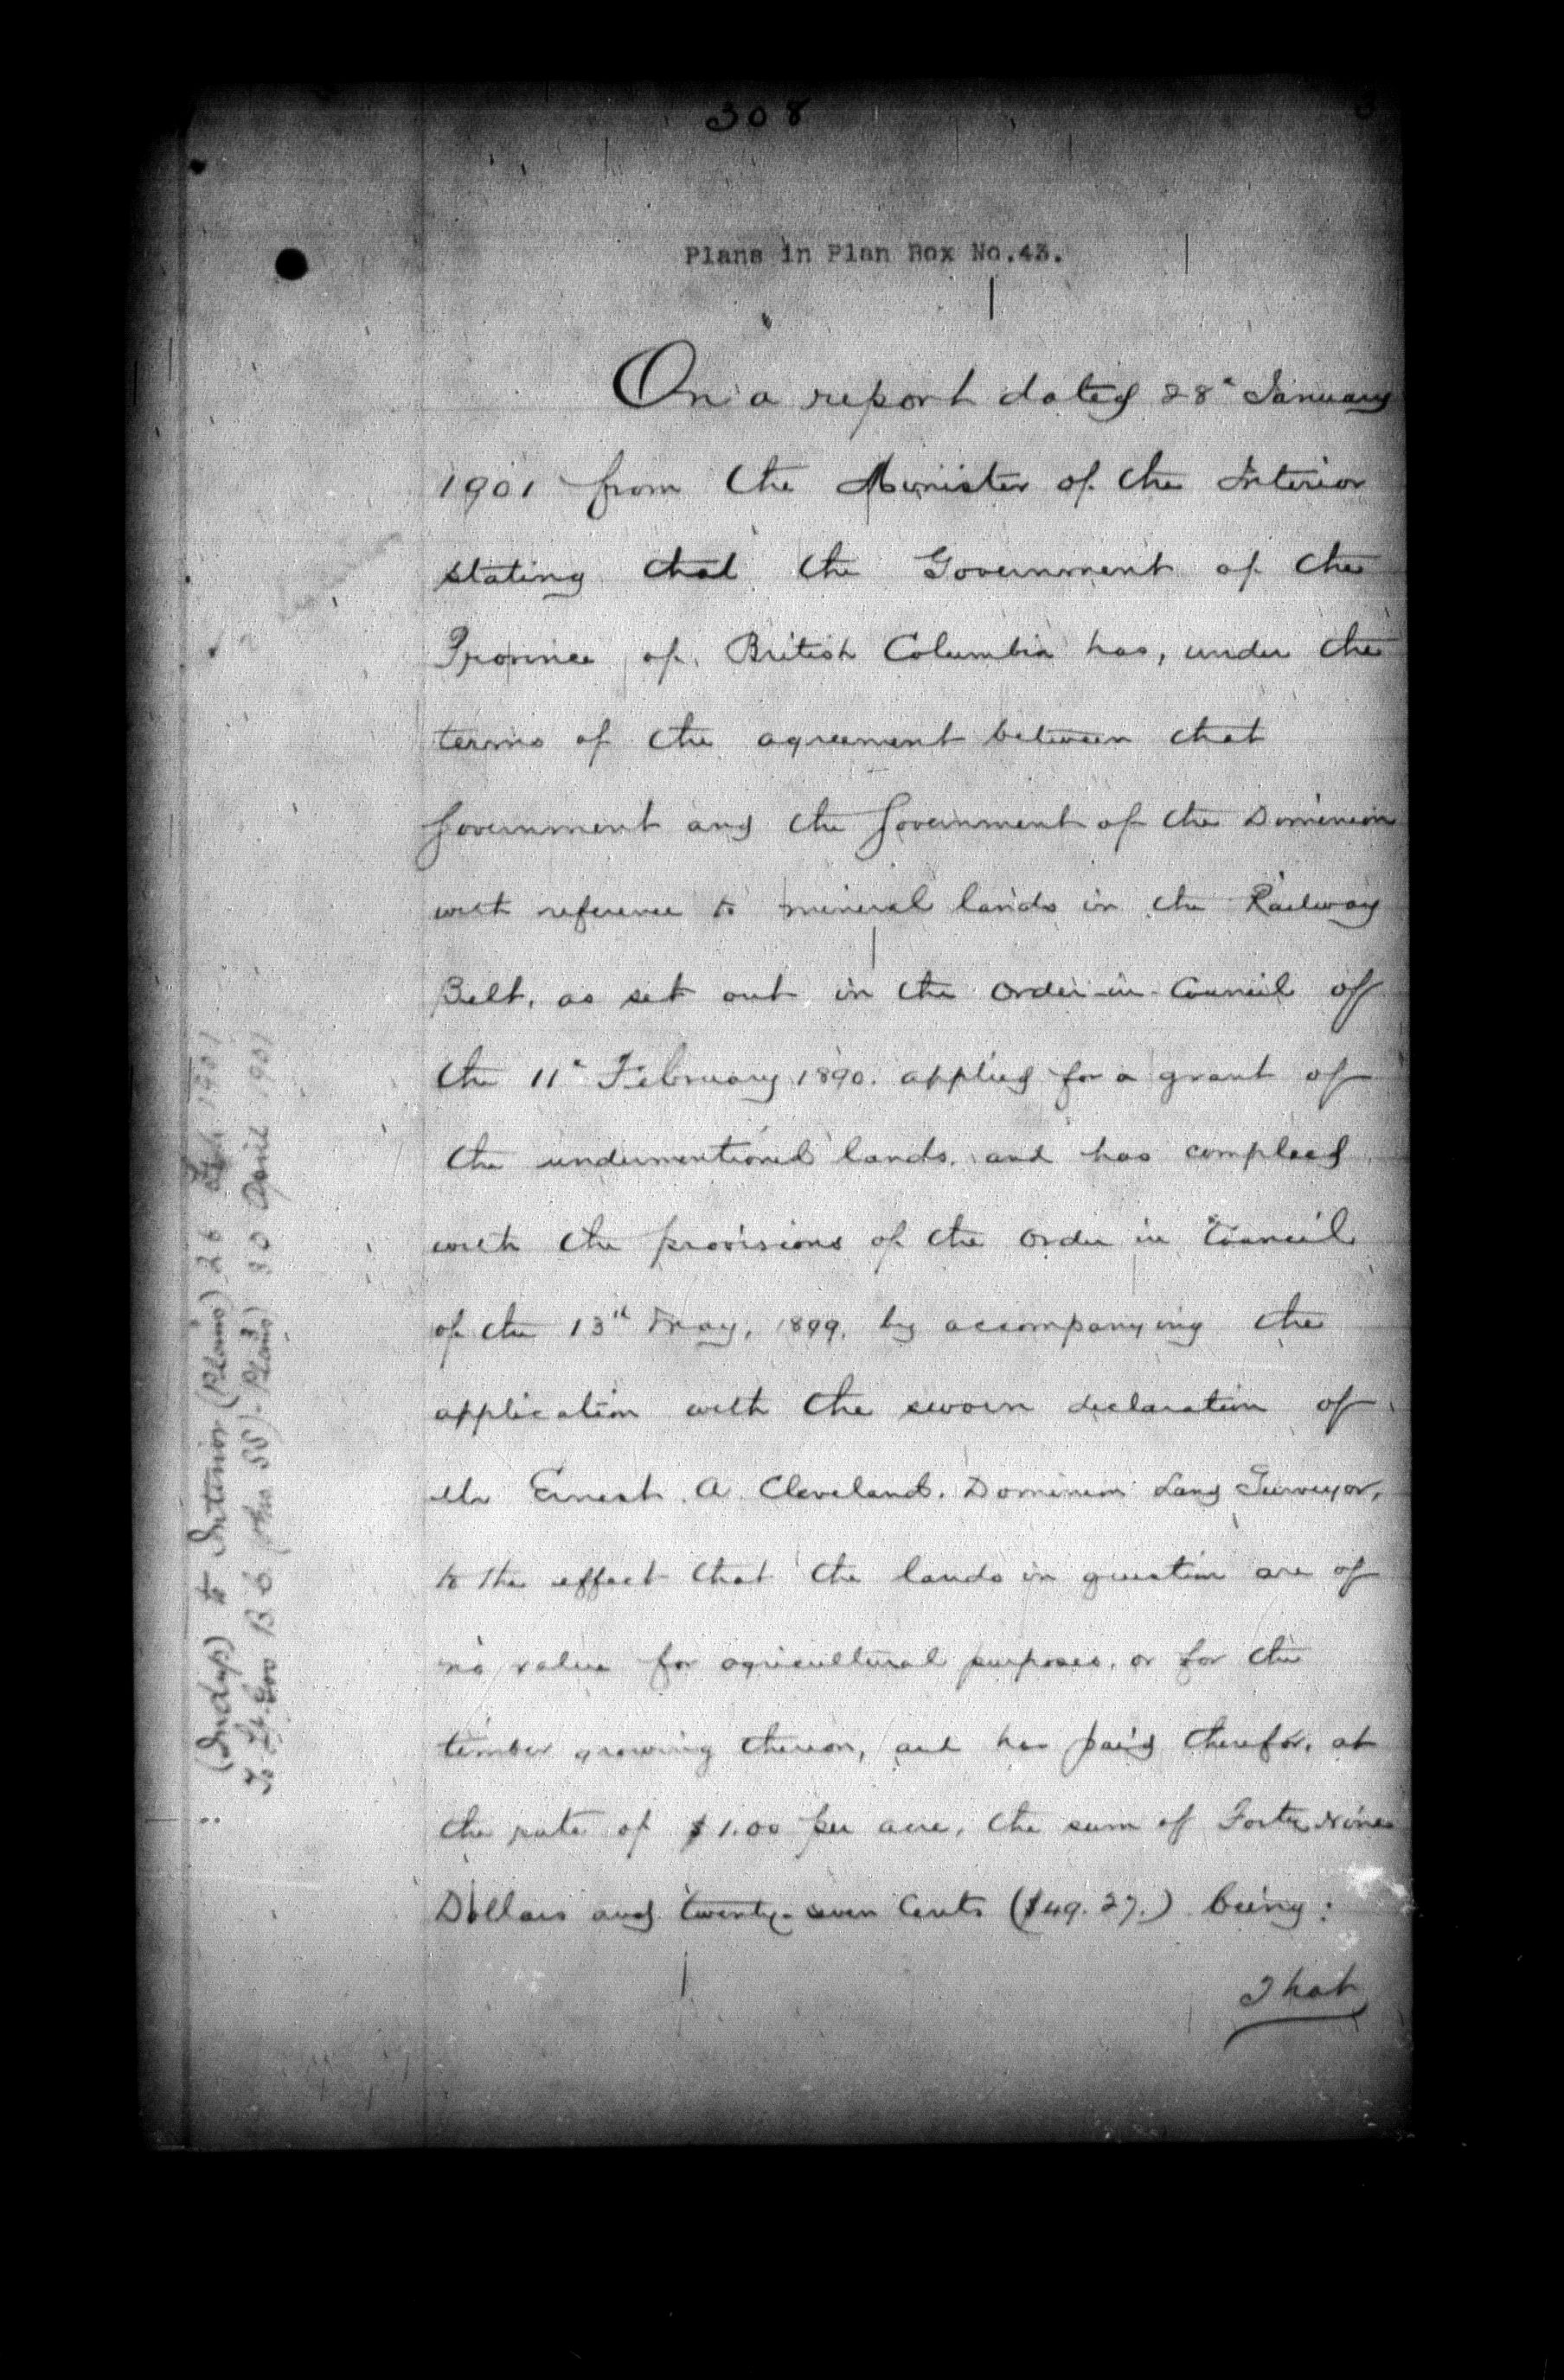 308
Plans in Plan Box No.43.
On a report dated 28" January
1901 from the Minister of the Interior
stating that the Government of the
Province of British Columbia has, under the
terms of the agreement between that
Government and the Government of the Dominion
with reference to mineral lands in the Railway
Belt, as set out in the Order-in-Council of
the 11" February 1890. applied for a grant of
the undermentioned lands. and has complied
with the provisions of the Order in Council
of the 13th May, 1899, by accompanying the
application with the sworn declaration of
Mr Ernest A Cleveland. Dominion Land Surveyor,
to the effect that the lands in question are of
no value for agricultural purposes, or for the
timber growing thereon, and has paid therefor, at
the rate of $1.00 per acre, the sum of Forty Nine
Dollars and twenty-seven Cents ($49.27.) being:
That
to Interior (Plans) 26 1901
To Lt. Gov B.C. Plans) 30 April 1901